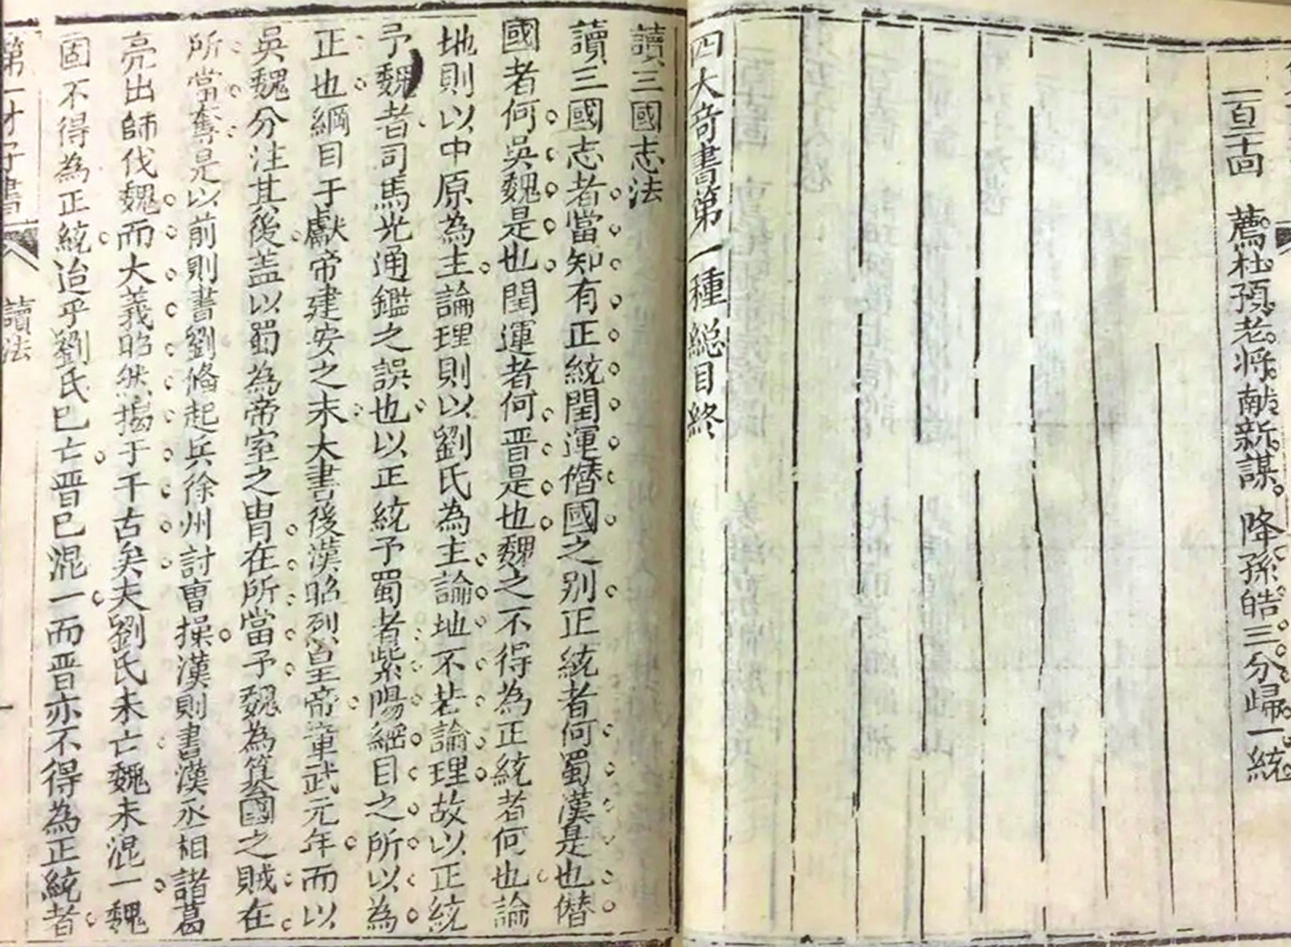 一百二十回　薦杜預老將献新謀　降孫皓三分歸一統
四大奇書第一種総目終
讀三國志法
讀三國志者當知有正統閏運僭國之别正統者何蜀漢是也僭
國者何吳魏是也閏運者何晋是也魏之不得為正統者何也論
地則以中原為主論理則以劉氏為主論地不若論理故以正統
予魏者司馬光通鑑之誤也以正統予蜀者紫陽綱目之所以為
正也綱目于獻帝建安之末大書後漢昭烈皇帝章武元年而以
吳魏分注其後盖以蜀為帝室之胄在所當予魏為篡國之賊在
所當奪是以前則書劉偹起兵徐州討曹操漢則書漢丞相諸葛
亮出師伐魏而大義昭然揭于千古矣夫劉氏未亡魏未混一魏
固不得為正統迨乎劉氏已亡晋已混一而晋亦不得為正統者
第一才子書　讀法